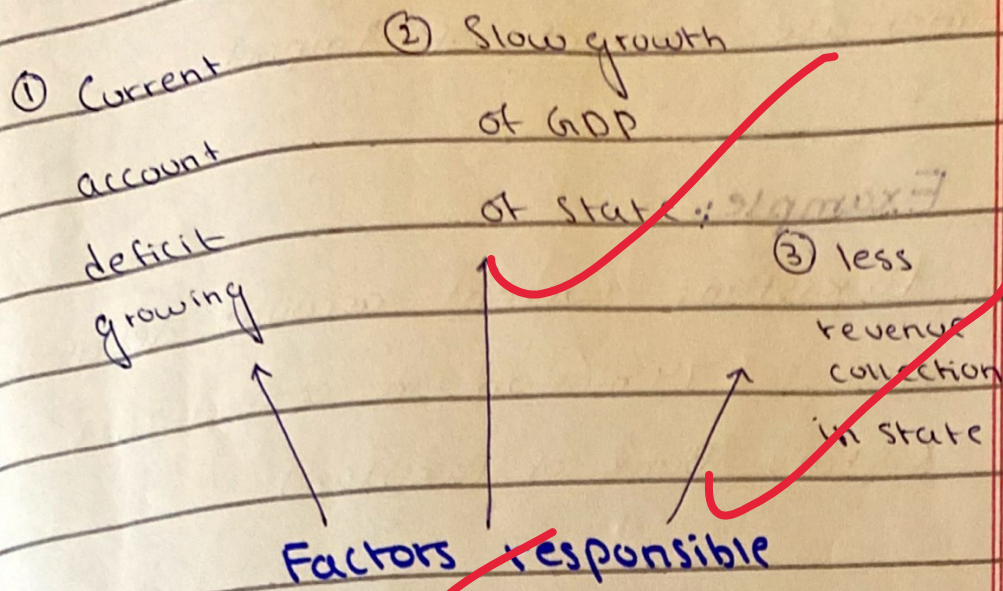 ① Current
account
deficit
growing
② Slow growth
of GDP
of state
③ less
revenue
collection
in state
Factors responsible